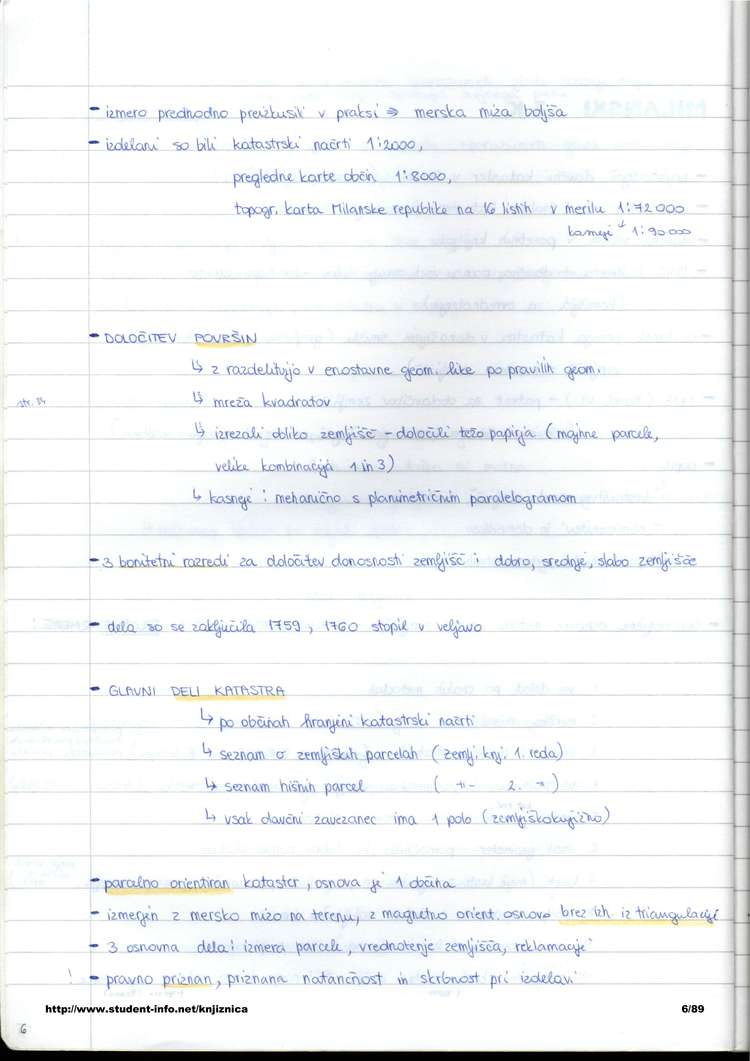 - izmero predhodno preizkusili v praksi ⇒ merska miza boljša
- izdelani so bili katastrski načrti 1:2000,
pregledne karte občin 1:8000,
topogr. karta Milanske republike na 16 listih v merilu 1:72 000
kasneje 1:90 000
- DOLOČITEV POVRŠIN
↳ z razdelitvijo v enostavne geom. like po pravilih geom.
str. 14
↳ mreža kvadratov
↳ izrezali obliko zemljišč - določili težo papirja (majhne parcele,
velike kombinacija 1 in 3)
↳ kasneje: mehanično s planimetričnim paralelogramom
- 3 bonitetni razredi za določitev donosnosti zemljišč: dobro, srednje, slabo zemljišče
- dela so se zaključila 1759, 1760 stopil v veljavo
- GLAVNI DELI KATASTRA
↳ po občinah hranjeni katastrski načrti
↳ seznam o zemljiških parcelah (zemlj. knj. 1. reda)
↳ seznam hišnih parcel ( -||- 2. -||- )
↳ vsak davčni zavezanec ima 1 polo (zemljiškoknjižno)
- parcelno orientiran kataster, osnova je 1 občina
- izmerjen z mersko mizo na terenu, z magnetno orient. osnovo brez izh. iz triangulacije
- 3 osnovna dela: izmera parcele, vrednotenje zemljišča, reklamacije
! - pravno priznan, priznana natančnost in skrbnost pri izdelavi
http://www.student-info.net/knjiznica 6/89
6